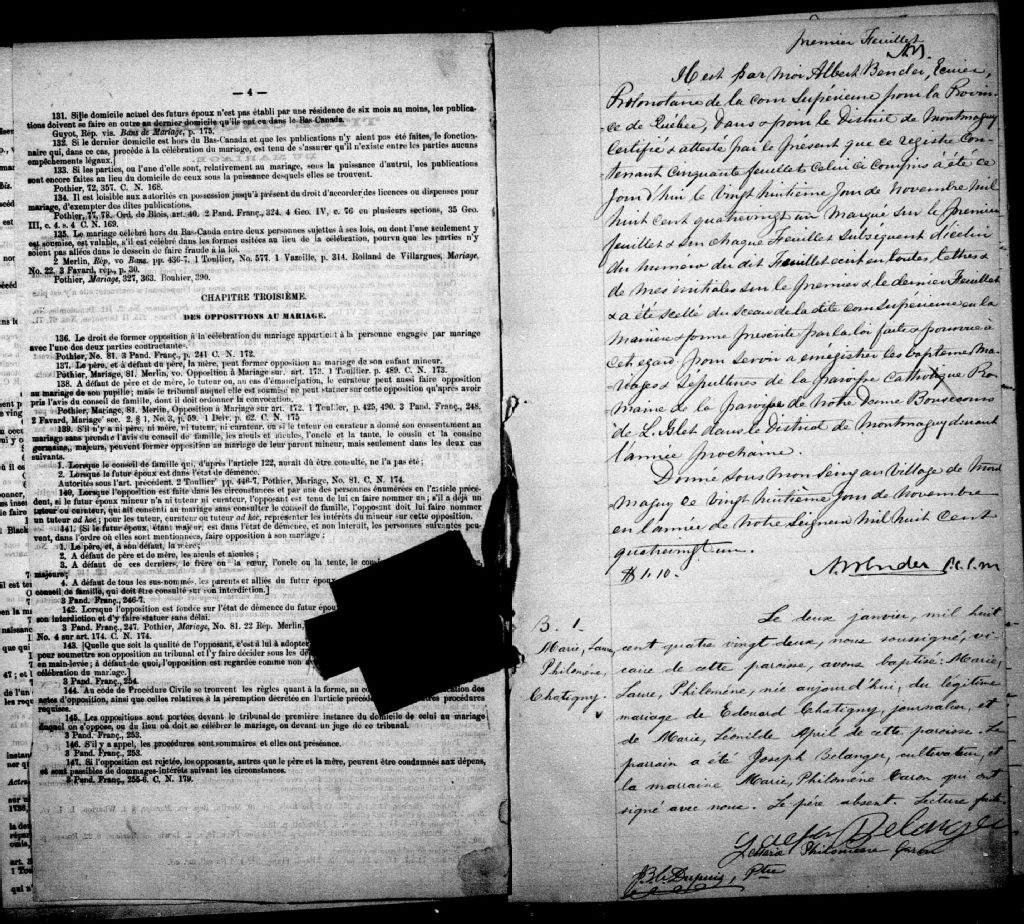 — 4 —
131. Si le domicile actuel des futurs époux n'est pas établi par une résidence de six mois au moins, les publications
doivent se faire en outre au dernier domicile qu'ils ont eu dans le Bas-Canada.
Guyot, Rép. vis. Bans de Mariage, p. 175.
132. Si le dernier domicile est hors du Bas-Canada et que les publications n'y aient pas été faites, le fonction-
naire qui, dans ce cas, procède à la célébration du mariage, est tenu de s'assurer qu'il n'existe entre les parties aucuns
empêchements légaux.
133. Si les parties, ou l'une d'elle sont, relativement au mariage, sous la puissance d'autrui, les publications
sont encore faites au lieu du domicile de ceux sous la puissance desquels elles se trouvent.
Pothier, 72, 357. C. N. 168.
134. Il est loisible aux autorités en possession jusqu'à présent du droit d'accorder des licences ou dispenses pour
mariage, d'exempter des dites publications.
Pothier, 77, 78. Ord. de Blois, art. 40. 2 Pand. Franç., 324. 4 Geo. IV, c. 76 en plusieurs sections, 35 Geo.
III, c. 4. s. 4 C. N. 169.
135. Le mariage célébré hors du Bas-Canada entre deux personnes sujettes à ses lois, ou dont l'une seulement y
est soumise, est valable, s'il est célébré dans les formes usitées au lieu de la célébration, pourvu que les parties n'y
soient pas allées dans le dessein de faire fraude à la loi.
2 Merlin, Rép, vo Bans. pp. 436-7. 1 Toullier, No. 577. 1 Vazeille, p. 314. Rolland de Villargues, Mariage,
No. 22. 3 Favard, rép., p. 30.
Pothier, Mariage, 327, 363. Bouhier, 390.
CHAPITRE TROISIÈME.
DES OPPOSITIONS AU MARIAGE.
136. Le droit de former opposition à la célébration du mariage appartient à la personne engagée par mariage
avec l'une des deux parties contractantes.
Pothier, No. 81. 3 Pand. Franç., p. 241 C. N. 172.
137. Le père, et à défaut du père, la mère, peut former opposition au mariage de son enfant mineur.
Pothier, Mariage, 81. Merlin, vo. Opposition à Mariage sur. art. 172. 1 Toullier. p. 489. C. N. 173.
138. A défaut de père et de mère, le tuteur ou, au cas d'émancipation, le curateur peut aussi faire opposition
au mariage de son pupille; mais le tribunal auquel elle est soumise ne peut statuer sur cette opposition qu'après avoir
pris l'avis du conseil de famille, dont il doit ordonner la convocation.
Pothier, Mariage, 81. Merlin, Opposition à Mariage sur art. 172. 1 Toullier, p. 425, 490. 3 Pand. Franç., 248.
2 Favard, Mariage sec. 2. § 1, No. 3, p. 59. 1 Delv. p. 62. C. N. 175
139. S'il n'y a ni père, ni mère, ni tuteur, ni curateur, ou si le tuteur ou curateur a donné son consentement au
mariage sans prendre l'avis du conseil de famille, les aïeuls et aïeules, l'oncle et la tante, le cousin et la cousine
germains, majeurs, peuvent former opposition au mariage de leur parent mineur, mais seulement dans les deux cas
suivants.
1. Lorsque le conseil de famille qui, d'après l'article 122, aurait dû être consulté, ne l'a pas été;
2. Lorsque le futur époux est dans l'état de démence.
Autorités sous l'art. précédent. 2 Toullier pp. 446-7, Pothier, Mariage, No. 81. C. N. 174.
140. Lorsque l'opposition est faite dans les circonstances et par une des personnes énumérées en l'article précé-
dent, si le futur époux mineur n'a ni tuteur ni curateur, l'opposant est tenu de lui en faire nommer un; s'il a déjà un
tuteur ou curateur, qui ait consenti au mariage sans consulter le conseil de famille, l'opposant doit lui faire nommer
un tuteur ad hoc; pour les tuteur, curateur ou tuteur ad hoc, représenter les intérêts du mineur sur cette opposition.
141. [Si le futur époux, étant majeur, est dans l'état de démence, et non interdit, les personnes suivantes peu-
vent, dans l'ordre où elles sont mentionnées, faire opposition à son mariage;
1. Le père, et, à son défaut, la mère;
2. A défaut de père et de mère, les aïeuls et aïeules;
3. A défaut de ces derniers, le frère ou la sœur, l'oncle ou la tante, le
majeurs;
4. A défaut de tous les sus-nommés, les parents et alliés du futur époux
conseil de famille, qui doit être consulté sur son interdiction.]
3 Pand. Franç., 246-7.
142. Lorsque l'opposition est fondée sur l'état de démence du futur époux
son interdiction et d'y faire statuer sans délai.
3 Pand. Franç., 247. Pothier, Mariage, No. 81. 22 Rép. Merlin,
No. 4 sur art. 174. C. N. 174.
143. [Quelle que soit la qualité de l'opposant, c'est à lui à adopter
pour soumettre son opposition au tribunal et l'y faire décider sous les
en main-levée; à défaut de quoi, l'opposition est regardée comme non
célébration du mariage.]
3 Pand. Franç., 254.
144. Au code de Procédure Civile se trouvent les règles quant à la forme, au des
actes d'opposition, ainsi que celles relatives à la péremption décrétée en l'article précédent procédures
requises.
145. Les oppositions sont portées devant le tribunal de première instance du domicile de celui au mariage
duquel on s'oppose, ou du lieu où doit se célébrer le mariage, ou devant un juge de ce tribunal.
3 Pand. Franç., 253.
146. S'il y a appel, les procédures sont sommaires et elles ont préséance.
3 Pand. Franç., 253.
147. Si l'opposition est rejetée, les opposants, autres que le père et la mère, peuvent être condamnés aux dépens,
et sont passibles de dommages-intérêts suivant les circonstances.
3 Pand. Franç., 255-6. C. N. 179.
premier Feuillet
Il est par moi Albert Bender, Ecuier,
Protonotaire de la cour Supérieure pour la Provin-
ce de Québec, dans & pour le District de Montmagny
Certifié & attesté par le présent que ce registre Con-
tenant Cinquante feuillets Celui ci Compris a été ce
Jour d'hui le vingt huitième Jour de novembre mil
huit cent quatrevingt un Marqué sur le premier
feuillet & sur chaque Feuillet subsequent d'icelui
du numéro du dit Feuillet écrit en toutes lettres &
de mes initiales sur le premier & le dernier Feuillet
& a été scellé du Sceau de la dite cour Supérieure en la
Manière & forme prescrite par la loi faite & pourvue à
cet égard pour servir à enregistrer les baptêmes Ma-
riages & Sépultures de la paroisse Catholique Ro-
maine de la paroisse de Notre Dame Bonsecours
de L'Islet dans le District de Montmagny durant
l'année prochaine.
Donné sous mon Seing au Village de Mont
magny ce vingt huitième jour de Novembre
en l'année de Notre Seigneur Mil huit Cent
quatrevingt un.
$1.10. A Bender P.C.S.M
B. 1.
Marie, Laure,
Philomène,
Chatigny.
Le deux janvier, mil huit
cent quatre vingt deux, nous soussigné, vi-
caire de cette paroisse, avons baptisé: Marie,
Laure, Philomène, née aujourd'hui, du légitime
mariage de Edouard Chatigny, journalier, et
de Marie, Léonilde April de cette paroisse. Le
parrain a été Joseph Belanger, cultivateur, et
la marraine Marie, Philomène Caron qui ont
signé avec nous. Le père absent. Lecture faite.
Joseph Belanger
Maria Philomène Caron
J.B.C. Dupuis, Ptre